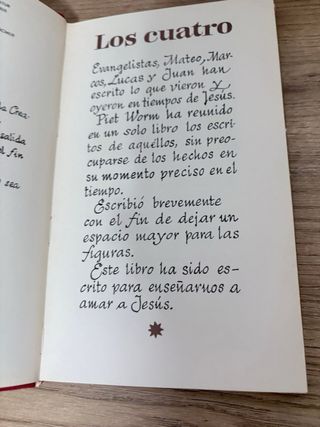 Los cuatro
Evangelistas, Mateo, Mar-
cos, Lucas y Juan han
escrito lo que vieron y
oyeron en tiempos de Jesús.
Piet Worm ha reunido
en un solo libro los escri-
tos de aquéllos, sin preo-
cuparse de los hechos en
su momento preciso en el
tiempo.
Escribió brevemente
con el fin de dejar un
espacio mayor para las
figuras.
Este libro ha sido es-
crito para enseñarnos a
amar a Jesús.